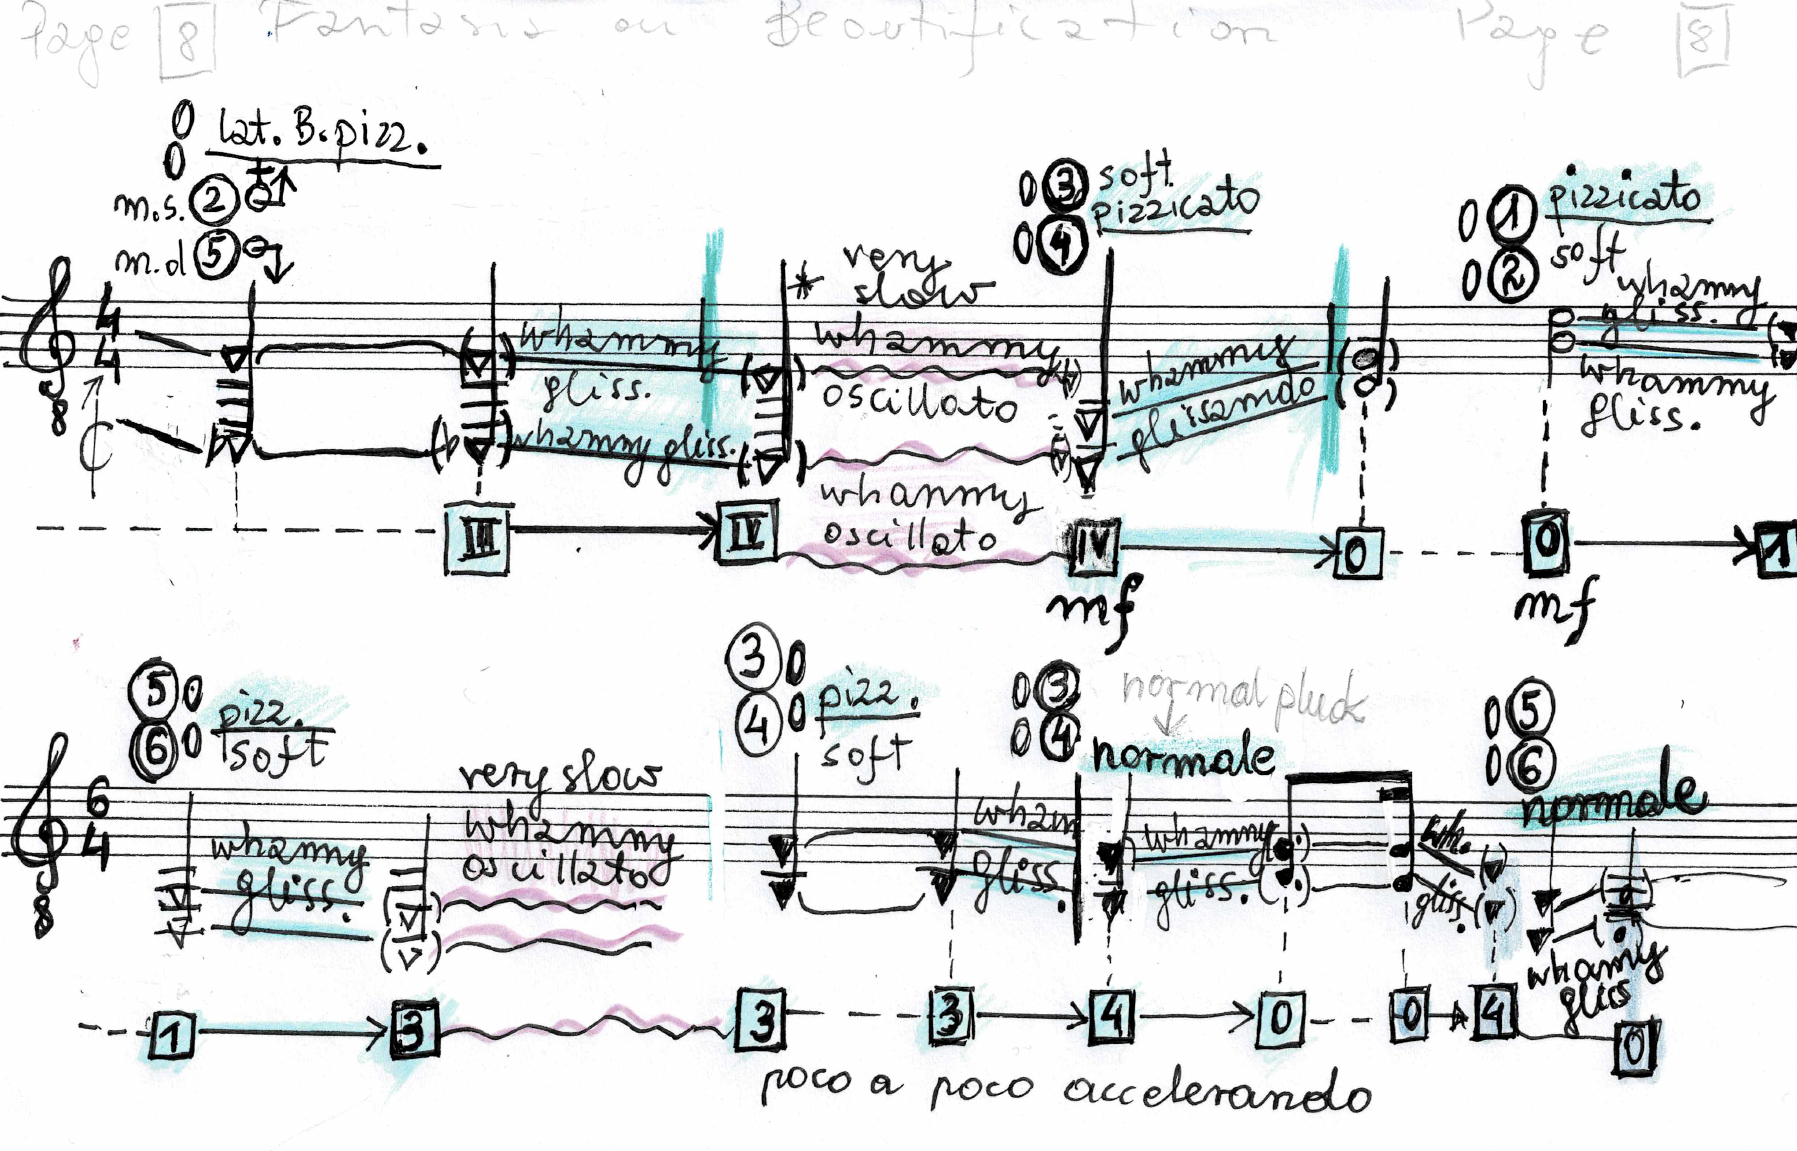 Page 8 Fantasia on Beautification Page 8
0 lat. B. pizz.
0
m.s. 2
m.d 5
0 3 soft
0 4 pizzicato
0 1 pizzicato
0 2 soft
4
4
8
whammy
gliss.
whammy gliss.
*
very
slow
whammy
oscillato
whammy
oscillato
whammy
glissando
whammy
gliss.
whammy
gliss.
III IV IV 0 0 1
mf mf
5 0 pizz.
6 0 soft
3 0 pizz.
4 0 soft
0 3 normal pluck
0 4 normale
0 5
0 6
normale
6
4
8
whammy
gliss.
very slow
whammy
oscillato
wham
gliss.
whammy
gliss.
wh.
gliss.
whamy
gliss
1 3 3 3 4 0 0 4 0
poco a poco accelerando